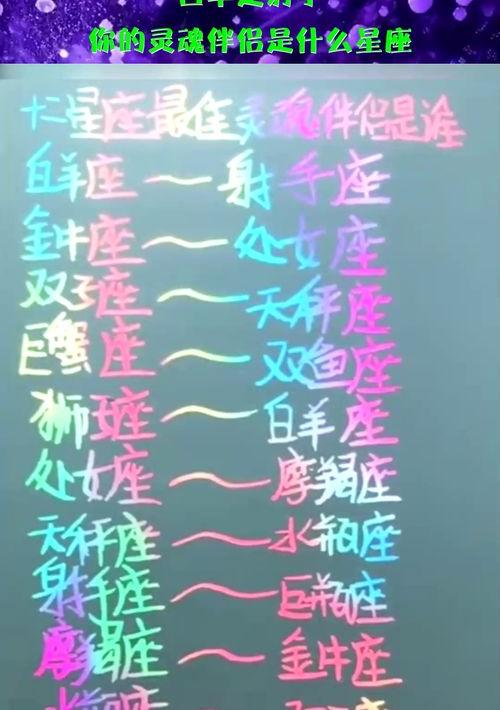 你的灵魂伴侣是什么星座
十二星座最佳灵魂伴侣是谁
白羊座～射手座
金牛座～处女座
双子座～天秤座
巨蟹座～双鱼座
狮子座～白羊座
处女座～摩羯座
天秤座～水瓶座
射手座～巨瓶座
摩羯座～金牛座